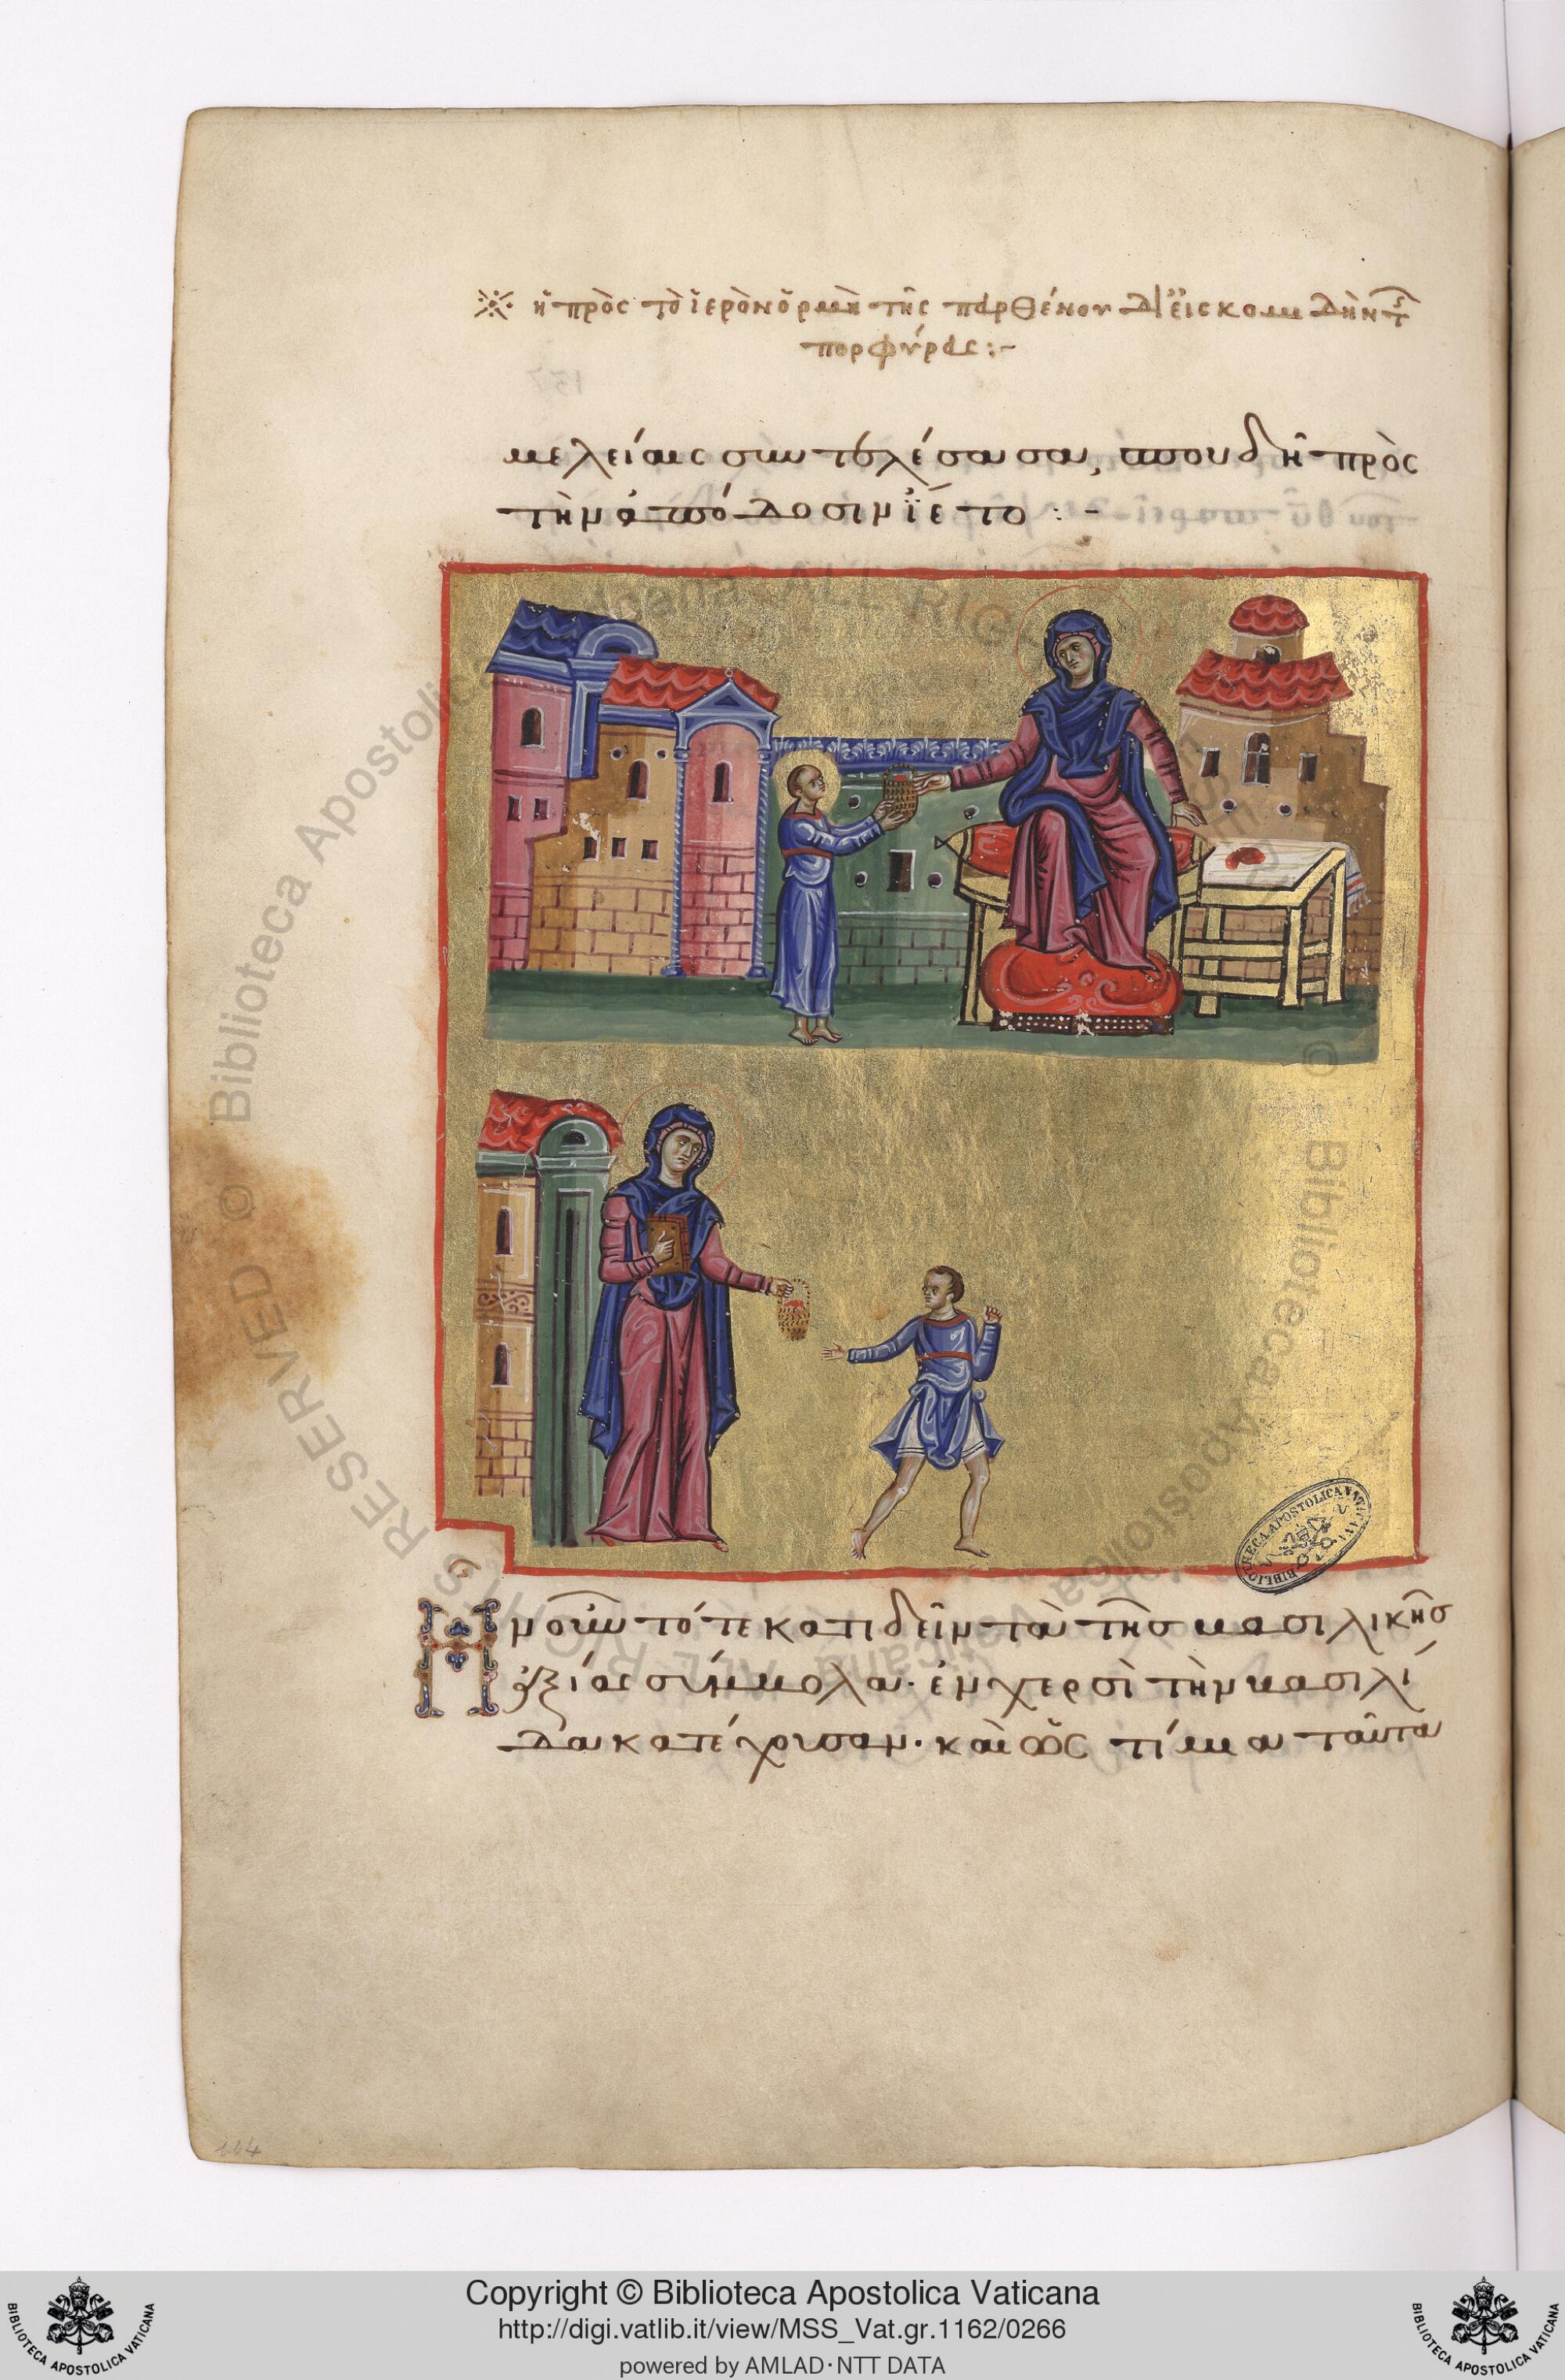 ※ ἡ πρὸς τὸ ἱερὸν ὁρμὴ τῆς παρθένου δι' εἰσκομιδὴν τ
πορφύρας :-
μελείας συντελέσασα, σπουδῆ πρὸς
τὴν ἀπόδοσιν ΐετο : -
Ἦν οὖν τότε κατιδεῖν τὰ τῆς βασιλικῆς
ἀξίας σύμβολα· ἐν χερσὶ τὴν βασιλί
δα κατέχουσαν· καὶ ὡς τίμια ταῦτα
164
© Biblioteca Apostolica Vaticana ALL RIGHTS RESERVED
BIBLIOTHECA APOSTOLICA VATICANA
Copyright © Biblioteca Apostolica Vaticana
http://digi.vatlib.it/view/MSS_Vat.gr.1162/0266
powered by AMLAD·NTT DATA
BIBLIOTECA APOSTOLICA VATICANA
BIBLIOTECA APOSTOLICA VATICANA